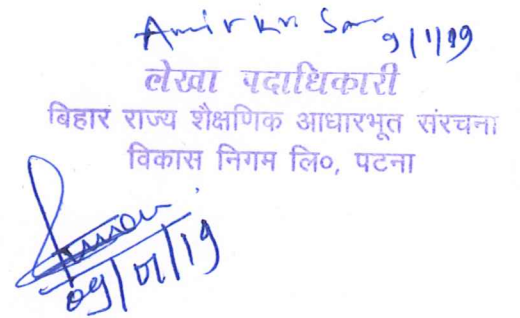 Amir Kr 9/1/19
लेखा पदाधिकारी
बिहार राज्य शैक्षणिक आधारभूत संरचना
विकास निगम लि०, पटना
09/01/19